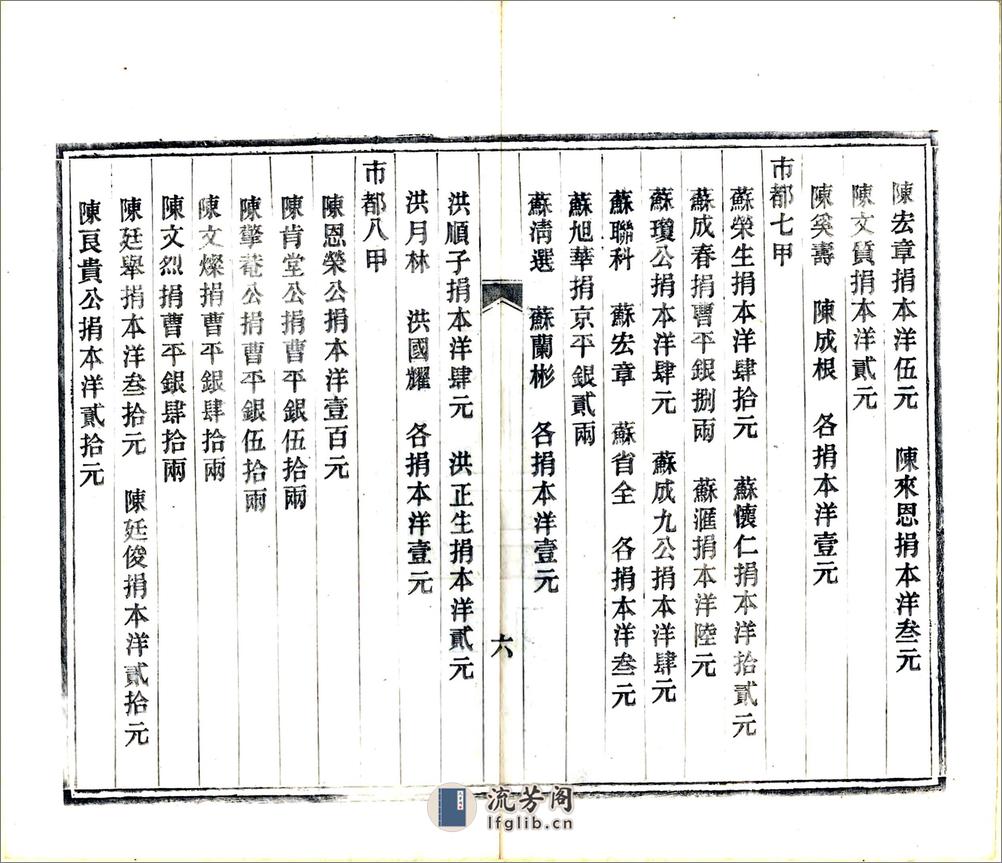 陳宏章捐本洋伍元　陳來恩捐本洋叁元
陳文質捐本洋貳元
陳奚壽　陳成根　各捐本洋壹元
市都七甲
蘇榮生捐本洋肆拾元　蘇懷仁捐本洋拾貳元
蘇成春捐曹平銀捌兩　蘇滙捐本洋陸元
蘇瓊公捐本洋肆元　蘇成九公捐本洋肆元
蘇聯科　蘇宏章　蘇省全　各捐本洋叁元
蘇旭華捐京平銀貳兩
蘇清選　蘇蘭彬　各捐本洋壹元
六
洪順子捐本洋肆元　洪正生捐本洋貳元
洪月林　洪國耀　各捐本洋壹元
市都八甲
陳恩榮公捐本洋壹百元
陳肯堂公捐曹平銀伍拾兩
陳擎菴公捐曹平銀伍拾兩
陳文燦捐曹平銀肆拾兩
陳文烈捐曹平銀肆拾兩
陳廷舉捐本洋叁拾元　陳廷俊捐本洋貳拾元
陳良貴公捐本洋貳拾元
流芳阁
lfglib.cn